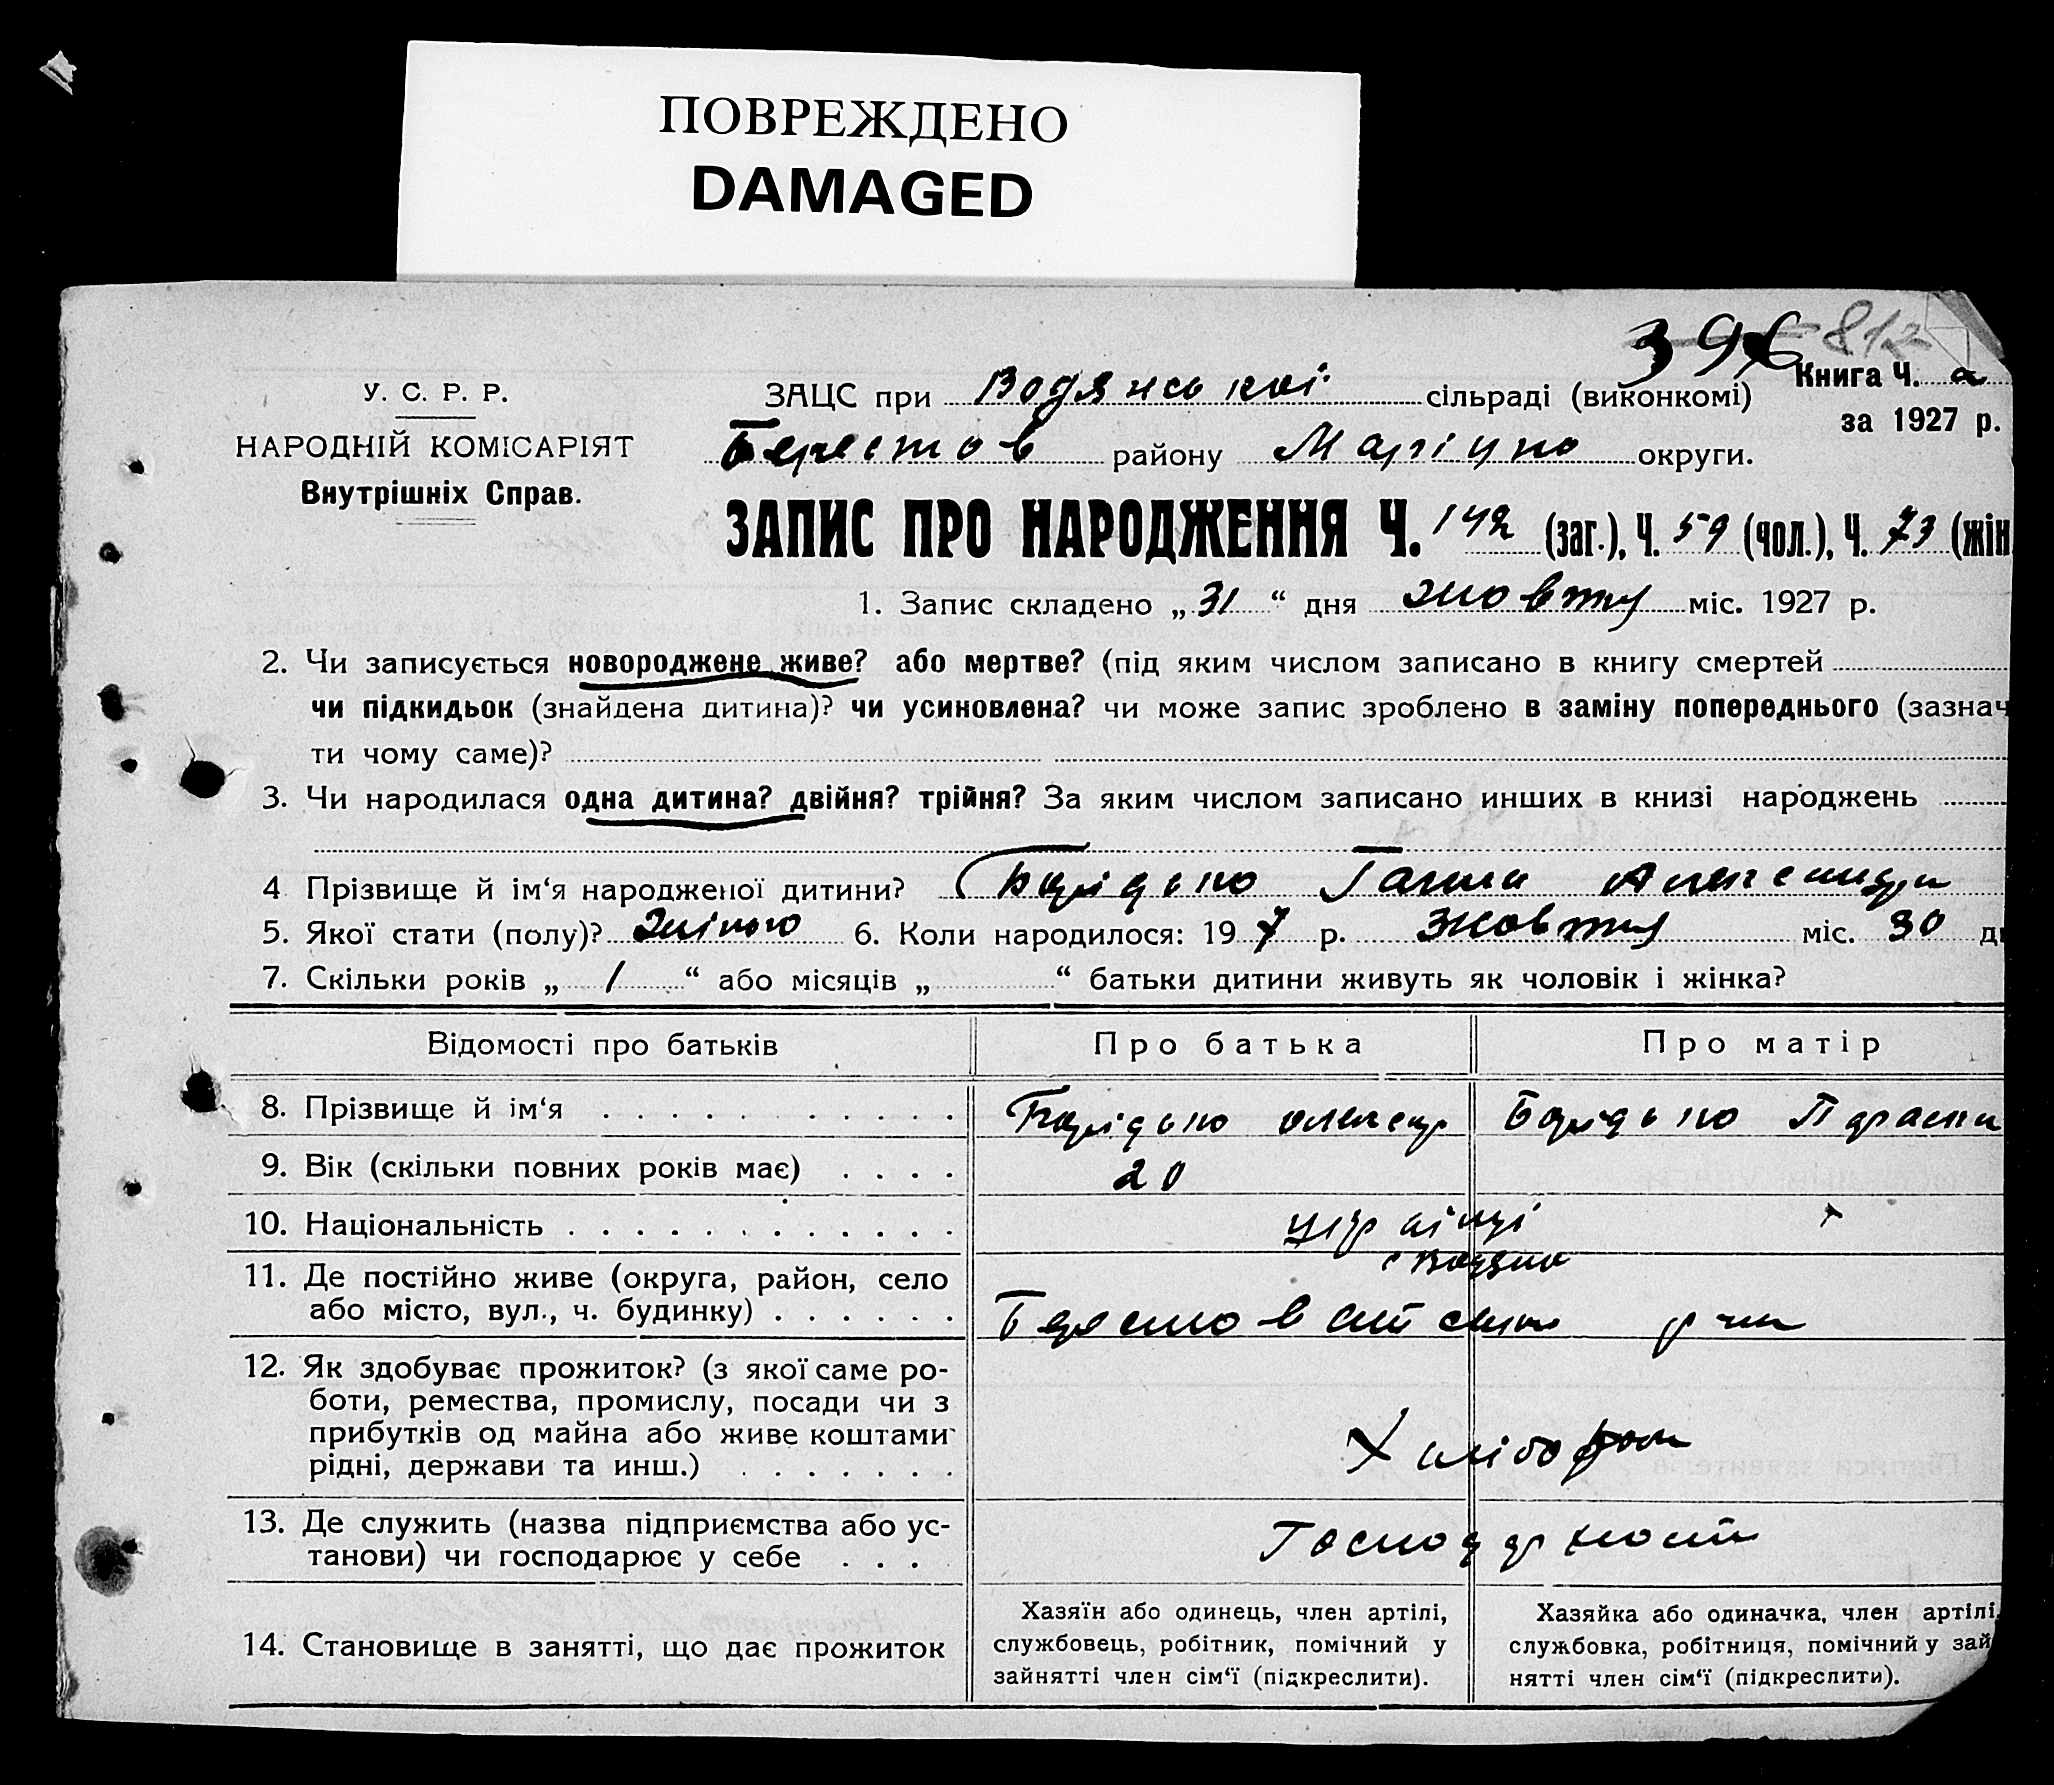 ПОВРЕЖДЕНО
DAMAGED
396 812
У. С. Р. Р.
НАРОДНІЙ КОМІСАРІЯТ
Внутрішніх Справ.
ЗАЦС при Водянської сільраді (виконкомі)
Книга Ч. а
за 1927 р.
Берестов району Маріупо округи.
ЗАПИС ПРО НАРОДЖЕННЯ Ч. 142 (заг.), Ч. 59 (чол.), Ч. 73 (жін
1. Запис складено „ 31 “ дня жовтня міс. 1927 р.
2. Чи записується новороджене живе? або мертве? (під яким числом записано в книгу смертей
чи підкидьок (знайдена дитина)? чи усиновлена? чи може запис зроблено в заміну попереднього (зазнач
ти чому саме)?
3. Чи народилася одна дитина? двійня? трійня? За яким числом записано инших в книзі народжень
4 Прізвище й ім‘я народженої дитини? Ганна
5. Якої стати (полу)? жіночо 6. Коли народилося: 19 7 р. жовтня міс. 30 д
7. Скільки років „ 1 “ або місяців „ “ батьки дитини живуть як чоловік і жінка?
Відомості про батьків Про батька Про матір
8. Прізвище й ім‘я
9. Вік (скільки повних років має) 20
10. Національність українці
11. Де постійно живе (округа, район, село
або місто, вул., ч. будинку)
12. Як здобуває прожиток? (з якої саме ро-
боти, ремества, промислу, посади чи з
прибутків од майна або живе коштами
рідні, держави та инш.) Хлібороб
13. Де служить (назва підприємства або ус-
танови) чи господарює у себе
14. Становище в занятті, що дає прожиток
Хазяїн або одинець, член артілі,
службовець, робітник, помічний у
зайнятті член сім‘ї (підкреслити).
Хазяйка або одиначка, член артілі,
службовка, робітниця, помічний у зай
нятті член сім‘ї (підкреслити).